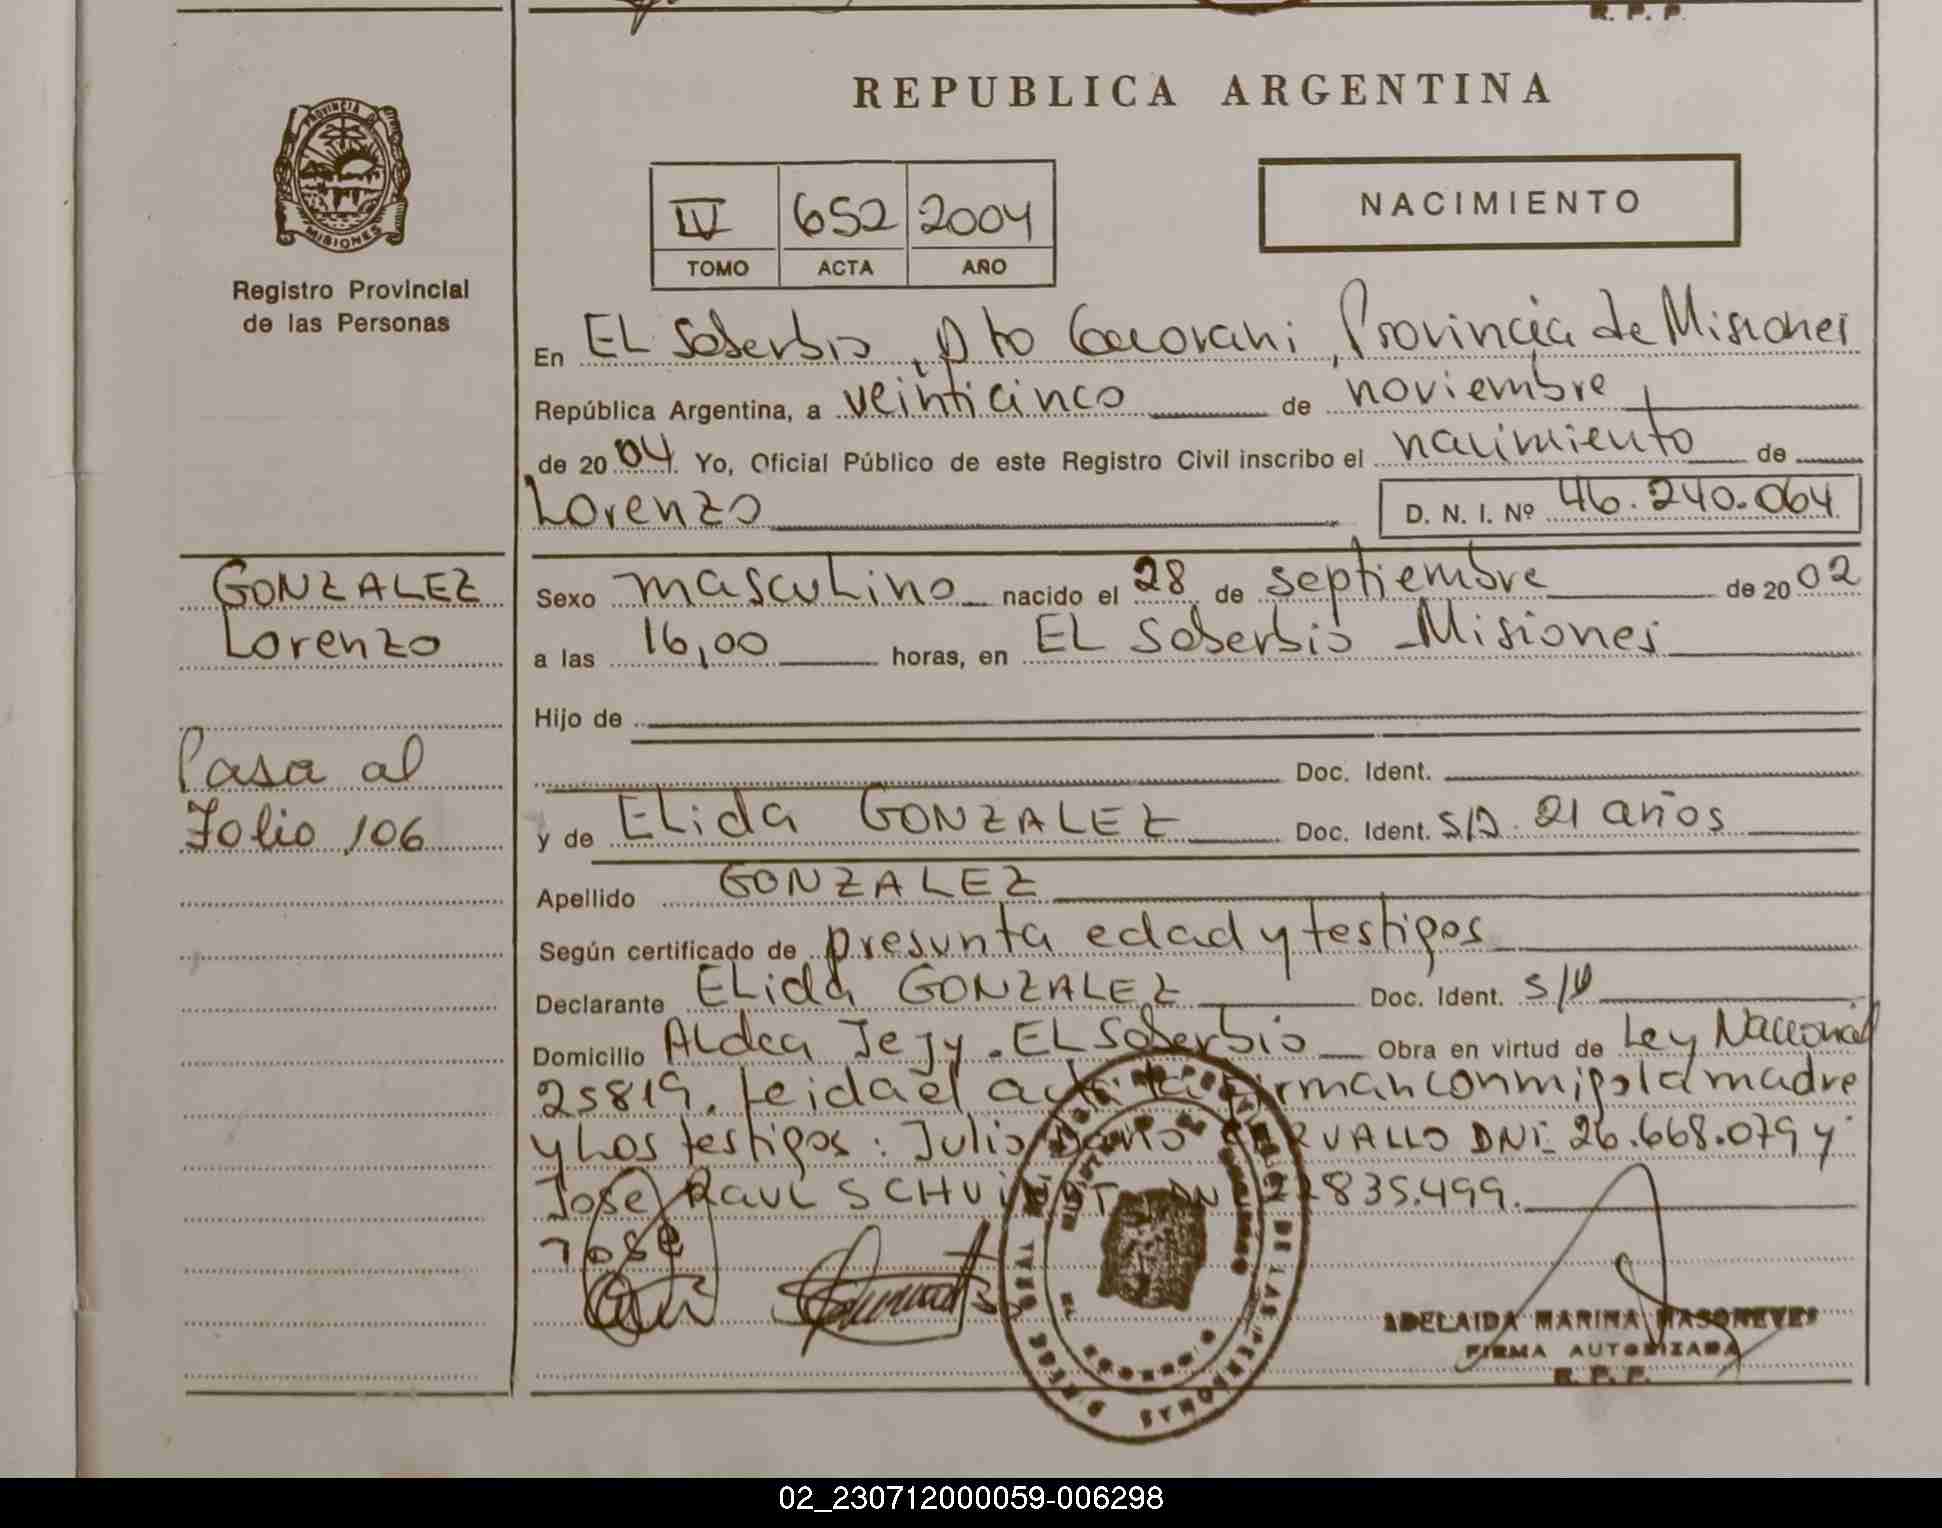 R. P. P.
REPUBLICA ARGENTINA
PROVINCIA DE
MISIONES
Registro Provincial
de las Personas
IV 652 2004
TOMO ACTA AÑO
NACIMIENTO
En EL Soberbio, Dto Guarani, Provincia de Misiones
República Argentina, a veinticinco de noviembre
de 2004. Yo, Oficial Público de este Registro Civil inscribo el nacimiento de
Lorenzo D. N. I. Nº 46.240.064
GONZALEZ
Lorenzo
Pasa al
Folio 106
Sexo masculino nacido el 28 de septiembre de 2002
a las 16,00 horas, en EL Soberbio - Misiones
Hijo de
Doc. Ident.
y de ELida GONZALEZ Doc. Ident. S/D. 21 años
Apellido GONZALEZ
Según certificado de presunta edad y testigos
Declarante ELida GONZALEZ Doc. Ident. S/D
Domicilio ALdea Jejy. EL Soberbio Obra en virtud de Ley Nacional
25819. Leida el acta la firman conmigo la madre
y Los testigos: Julio Dario DNI: 26.668.079 y
Jose RAUL 835.499.
Jose
ADELAIDA MARINA MASONEVES
FIRMA AUTORIZADA
R. P. P.
02_230712000059-006298